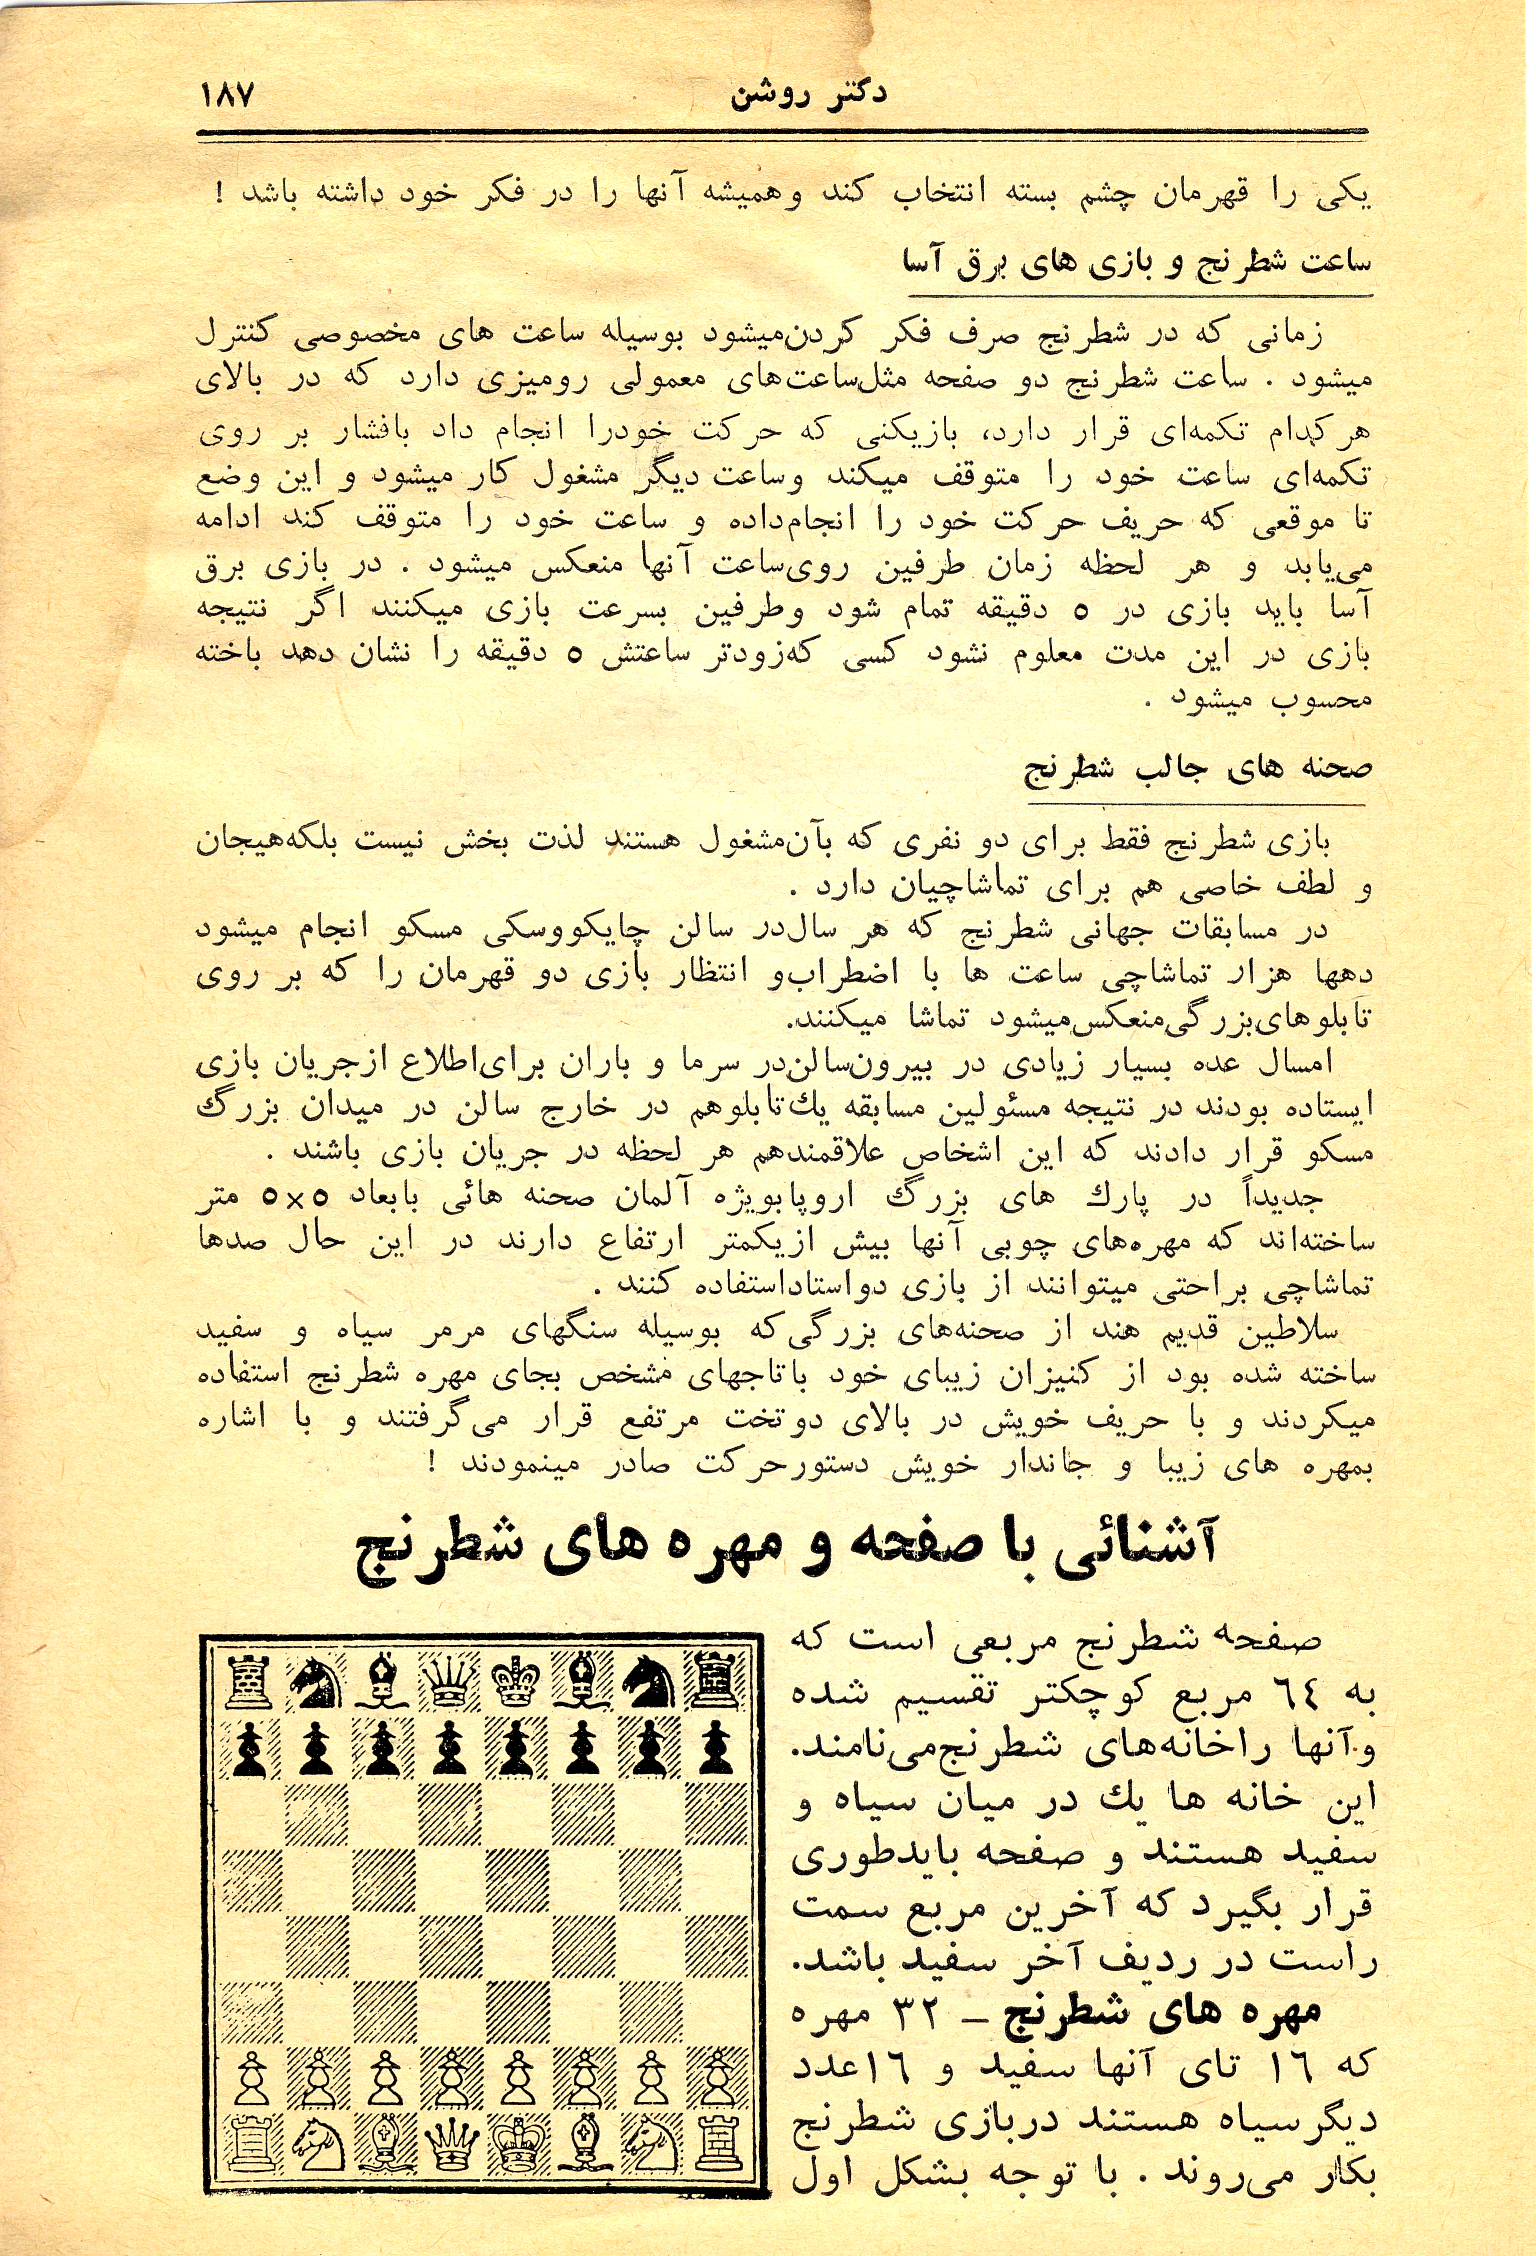 دکتر روشن
۱۸۷
یکی را قهرمان چشم بسته انتخاب کند وهمیشه آنها را در فکر خود داشته باشد !
ساعت شطرنج و بازی های برق آسا
زمانی که در شطرنج صرف فکر کردن‌میشود بوسیله ساعت های مخصوصی کنترل
میشود . ساعت شطرنج دو صفحه مثل‌ساعت‌های معمولی رومیزی دارد که در بالای
هرکدام تکمه‌ای قرار دارد، بازیکنی که حرکت خودرا انجام داد بافشار بر روی
تکمه‌ای ساعت خود را متوقف میکند وساعت دیگر مشغول کار میشود و این وضع
تا موقعی که حریف حرکت خود را انجام‌داده و ساعت خود را متوقف کند ادامه
می‌یابد و هر لحظه زمان طرفین روی‌ساعت آنها منعکس میشود . در بازی برق
آسا باید بازی در ۵ دقیقه تمام شود وطرفین بسرعت بازی میکنند اگر نتیجه
بازی در این مدت معلوم نشود کسی که‌زودتر ساعتش ۵ دقیقه را نشان دهد باخته
محسوب میشود .
صحنه های جالب شطرنج
بازی شطرنج فقط برای دو نفری که بآن‌مشغول هستند لذت بخش نیست بلکه‌هیجان
و لطف خاصی هم برای تماشاچیان دارد .
در مسابقات جهانی شطرنج که هر سال‌در سالن چایکووسکی مسکو انجام میشود
دهها هزار تماشاچی ساعت ها با اضطراب‌و انتظار بازی دو قهرمان را که بر روی
تابلوهای‌بزرگی‌منعکس‌میشود تماشا میکنند.
امسال عده بسیار زیادی در بیرون‌سالن‌در سرما و باران برای‌اطلاع ازجریان بازی
ایستاده بودند در نتیجه مسئولین مسابقه یك‌تابلوهم در خارج سالن در میدان بزرگ
مسکو قرار دادند که این اشخاص علاقمندهم هر لحظه در جریان بازی باشند .
جدیداً در پارك های بزرگ اروپابویژه آلمان صحنه هائی بابعاد ۵×۵ متر
ساخته‌اند که مهره‌های چوبی آنها بیش ازیکمتر ارتفاع دارند در این حال صدها
تماشاچی براحتی میتوانند از بازی دواستاداستفاده کنند .
سلاطین قدیم هند از صحنه‌های بزرگی‌که بوسیله سنگهای مرمر سیاه و سفید
ساخته شده بود از کنیزان زیبای خود باتاجهای مشخص بجای مهره شطرنج استفاده
میکردند و با حریف خویش در بالای دوتخت مرتفع قرار می‌گرفتند و با اشاره
بمهره های زیبا و جاندار خویش دستورحرکت صادر مینمودند !
آشنائی با صفحه و مهره های شطرنج
صفحه شطرنج مربعی است که
به ٦٤ مربع کوچکتر تقسیم شده
و آنها راخانه‌های شطرنج‌می‌نامند.
این خانه ها یك در میان سیاه و
سفید هستند و صفحه بایدطوری
قرار بگیرد که آخرین مربع سمت
راست در ردیف آخر سفید باشد.
مهره های شطرنج ــ ۳۲ مهره
که ١٦ تای آنها سفید و ١٦عدد
دیگرسیاه هستند دربازی شطرنج
بکار می‌روند . با توجه بشکل اول